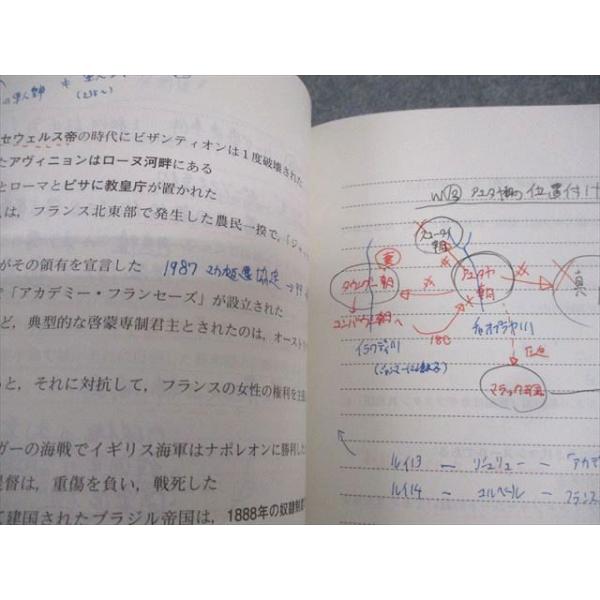 (235〜)
セウェルス帝の時代にビザンティオンは1度破壊された
たアヴィニョンはローヌ河畔にある
とローマとピサに教皇庁が置かれた
は，フランス北東部で発生した農民一揆で，「ジ
がその領有を宣言した 1987
で「アカデミー・フランセーズ」が設立された
ど，典型的な啓蒙専制君主とされたのは，オースト
と，それに対抗して，フランスの女性の権利を主
ガーの海戦でイギリス海軍はナポレオンに勝利した
提督は，重傷を負い，戦死した
て建国されたブラジル帝国は，1888年の奴隷制
アユタヤ朝の位置付け
スコータイ朝
タウングー朝
アユタヤ朝
真
コンバウン朝へ
イラワディ川
チャオプラヤ川
マラッカ王国
ルイ13 ― リシュリュー ― 「アカデ
ルイ14 ― コルベール ― フランス